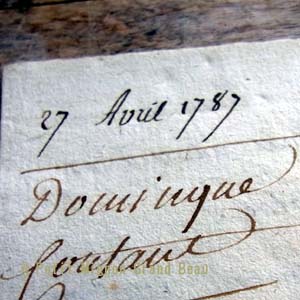 27 Avril 1787
Dominique
Coutant
Grand Beau